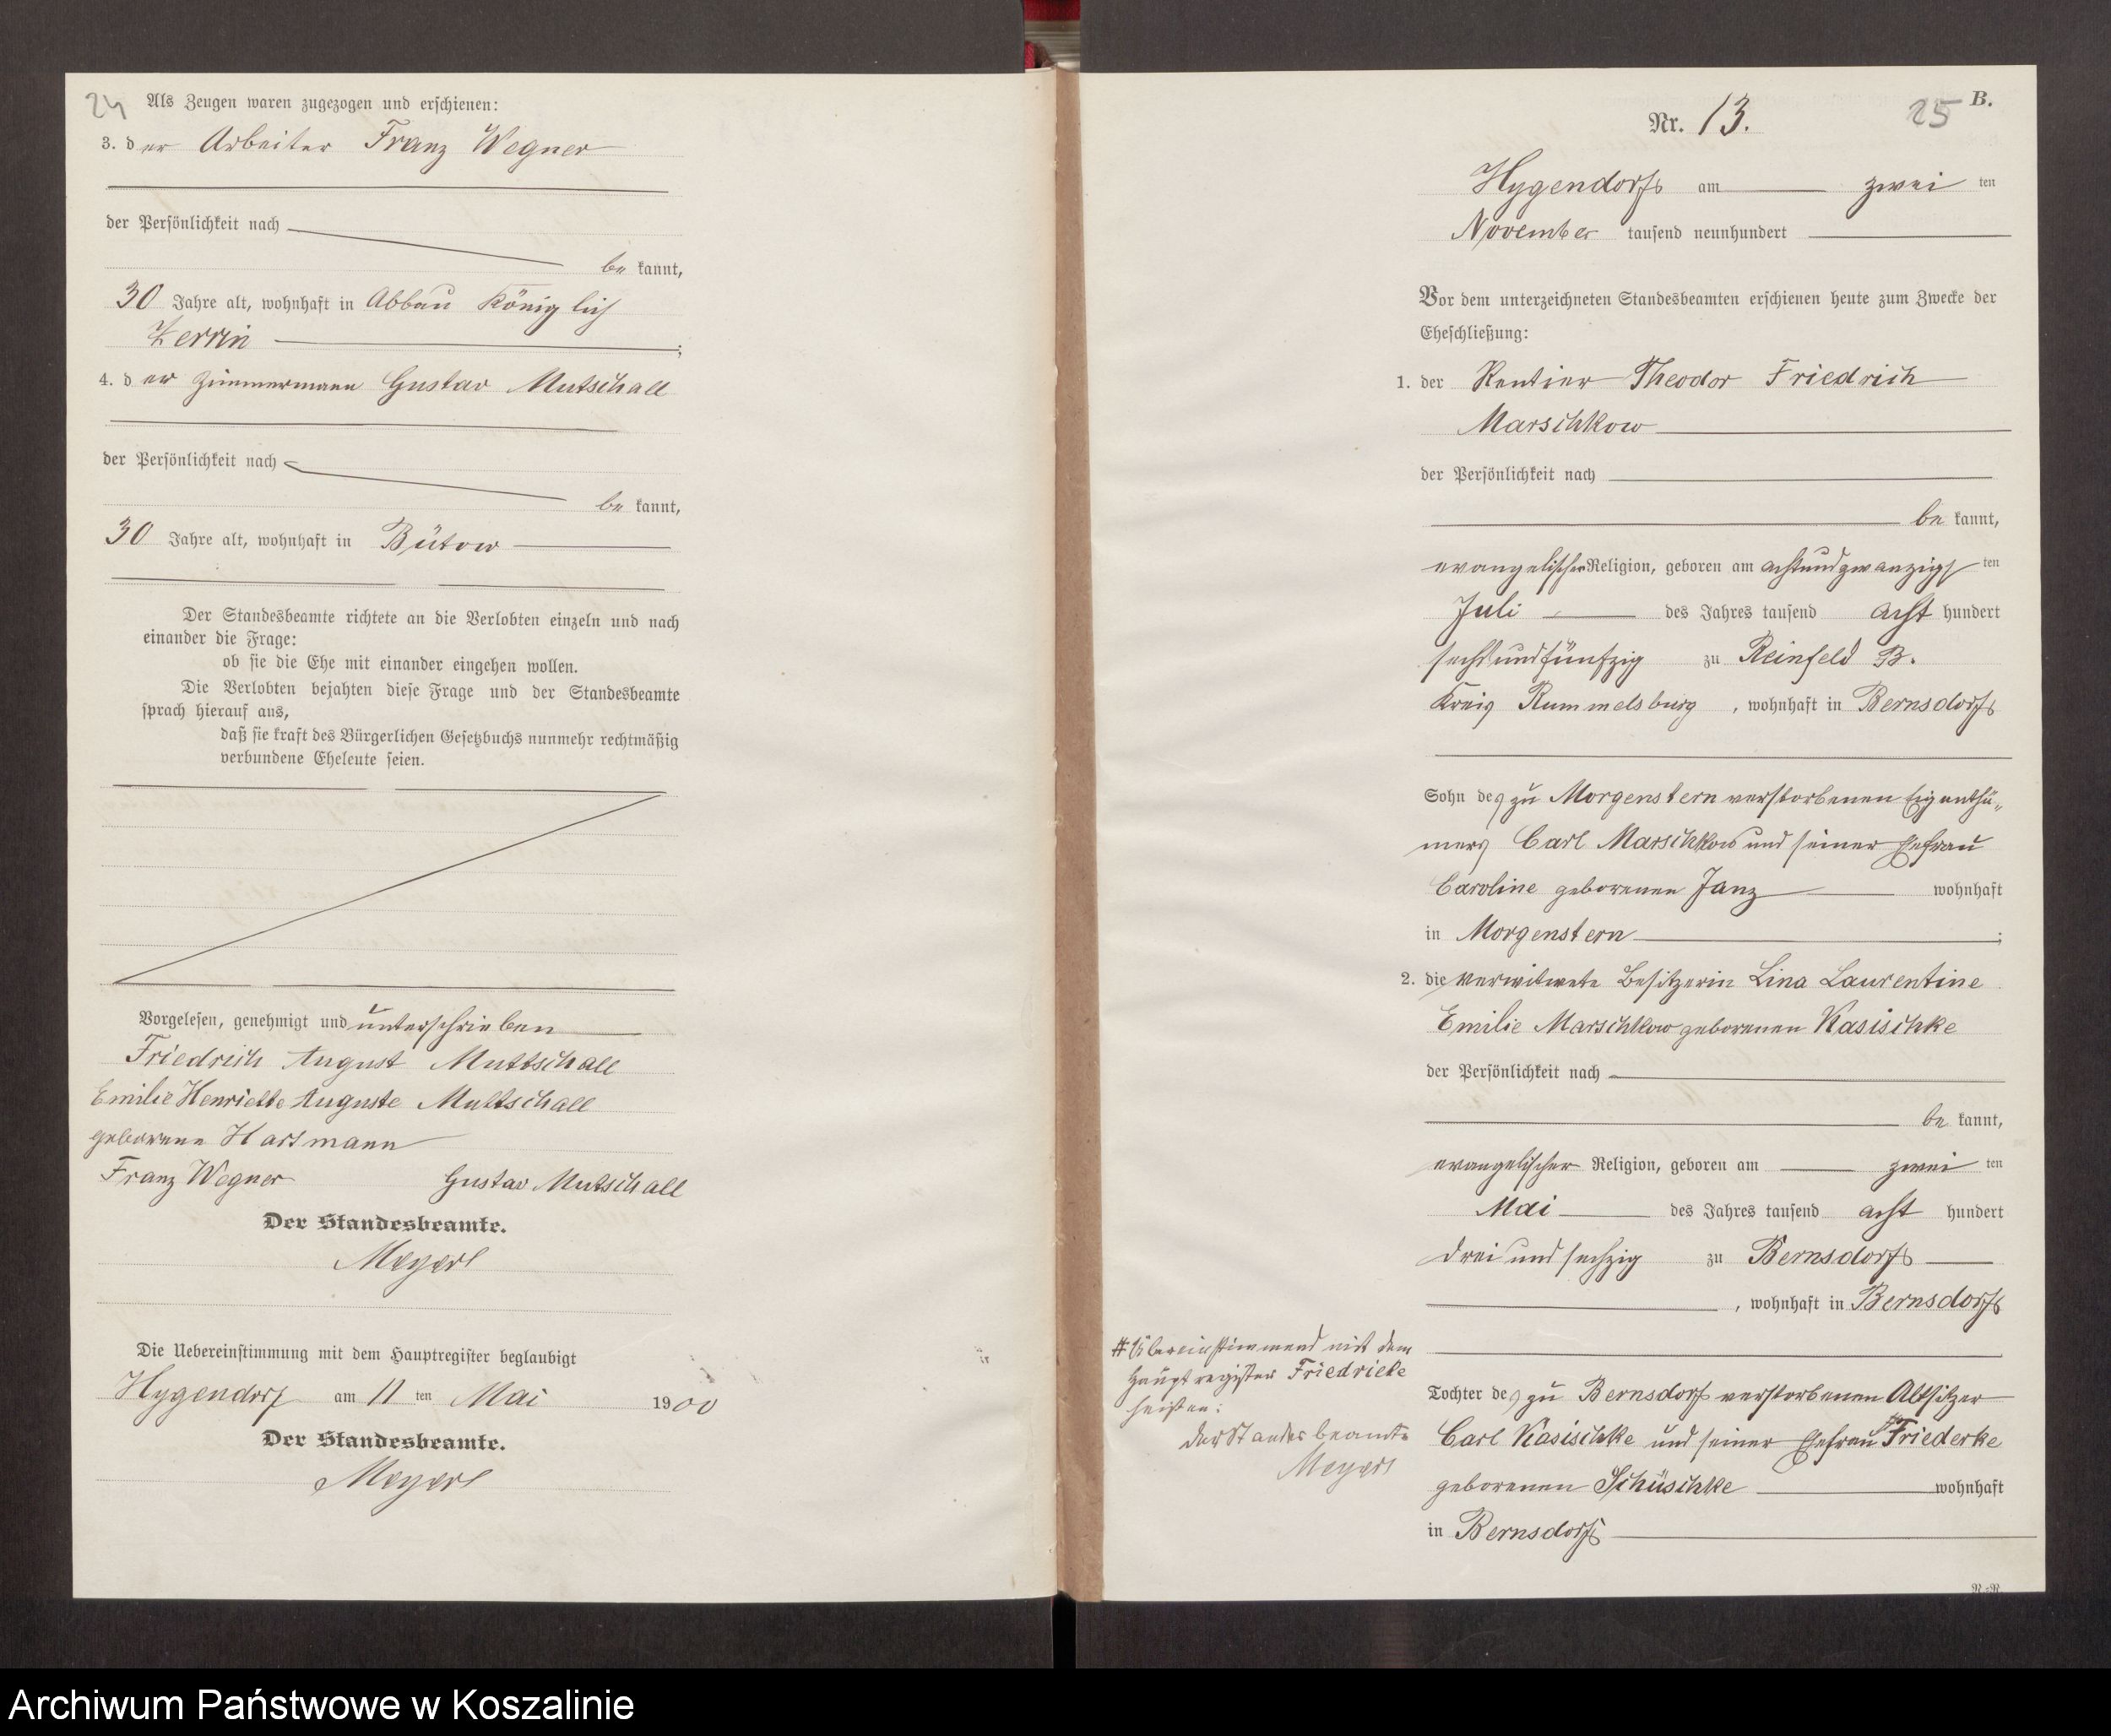 24
Als Zeugen waren zugezogen und erschienen:
3. der Arbeiter Franz Wegner
der Persönlichkeit nach
be kannt,
30 Jahre alt, wohnhaft in Abbau Königlich
Zerrin ;
4. der Zimmermann Gustav Mutschall
der Persönlichkeit nach
be kannt,
30 Jahre alt, wohnhaft in Bütow
Der Standesbeamte richtete an die Verlobten einzeln und nach
einander die Frage:
ob sie die Ehe mit einander eingehen wollen.
Die Verlobten bejahten diese Frage und der Standesbeamte
sprach hierauf aus,
daß sie kraft des Bürgerlichen Gesetzbuchs nunmehr rechtmäßig
verbundene Eheleute seien.
Vorgelesen, genehmigt und unterschrieben
Friedrich August Muttschall
Emilie Henriette Auguste Muttschall
geborene Hartmann
Franz Wegner Gustav Mutschall
Der Standesbeamte.
Meyerl
Die Uebereinstimmung mit dem Hauptregister beglaubigt
Hygendorf am 11 ten Mai 1900
Der Standesbeamte.
Meyerl
B.
25
Nr. 13.
Hygendorf am zwei ten
November tausend neunhundert
Vor dem unterzeichneten Standesbeamten erschienen heute zum Zwecke der
Eheschließung:
1. der Rentier Theodor Friedrich
Marschkow
der Persönlichkeit nach
be kannt,
evangelischer Religion, geboren am achtundzwanzigs ten
Juli des Jahres tausend acht hundert
sechsundfünfzig zu Reinfeld B.
Kreis Rummelsburg , wohnhaft in Bernsdorf
Sohn des zu Morgenstern verstorbenen Eigenthü„
mers Carl Marschkow und seiner Ehefrau
Caroline geborenen Janz wohnhaft
in Morgenstern ;
2. die verwitwete Besitzerin Lina Laurentine
Emilie Marschkow geborenen Kasischke
der Persönlichkeit nach
be kannt,
evangelischer Religion, geboren am zwei ten
Mai des Jahres tausend acht hundert
drei und sechzig zu Bernsdorf
, wohnhaft in Bernsdorf
Tochter des zu Bernsdorf verstorbenen Altsitzer
Carl Kasischke und seiner Ehefrau # Friederke
geborenen Schüschke wohnhaft
in Bernsdorf
# Übereinstimmend mit dem
Hauptregister Friedrieke
heißen:
Der Standesbeamte
Meyerl
Archiwum Państwowe w Koszalinie